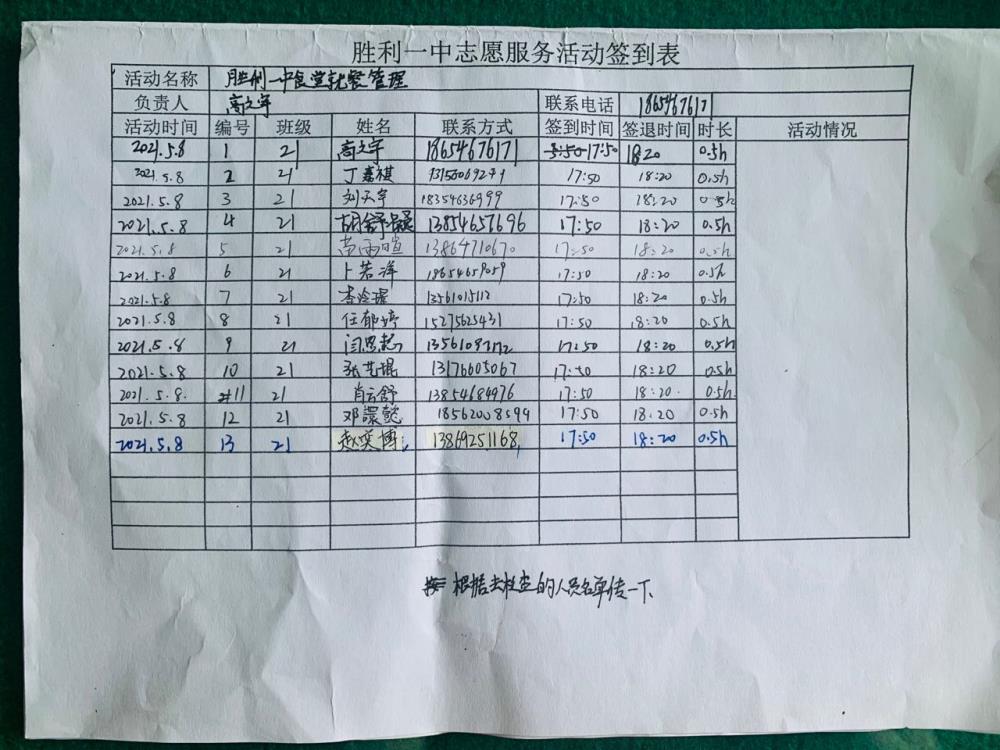 胜利一中志愿服务活动签到表
活动名称 胜利一中食堂就餐管理
负责人 高文宇 联系电话 1865467617
活动时间 编号 班级 姓名 联系方式 签到时间 签退时间 时长 活动情况
2021.5.8 1 21 高文宇 1865467617 17:50 18:20 0.5h
2021.5.8 2 21 丁嘉祺 17:50 18:20 0.5h
2021.5.8 3 21 刘天宇 18354636999 17:50 18:20 0.5h
2021.5.8 4 21 胡舒 13854657696 17:50 18:20 0.5h
2021.5.8 5 21 苗雨暄 13864710670 17:50 18:20 0.5h
2021.5.8 6 21 卜若洋 17:50 18:20 0.5h
2021.5.8 7 21 13561015112 17:50 18:20 0.5h
2021.5.8 8 21 任郁婷 15275625431 17:50 18:20 0.5h
2021.5.8 9 21 闫思起 17:50 18:20 0.5h
2021.5.8 10 21 张艺琨 13176605067 17:50 18:20 0.5h
2021.5.8. 11 21 肖云舒 13854684976 17:50 18:20. 0.5h.
2021.5.8 12 21 邓懿 18562008599 17:50 18:20 0.5h
2021.5.8 13 21 赵奕博 13869251168 17:50 18:20 0.5h
根据去检查的人员名单传一下